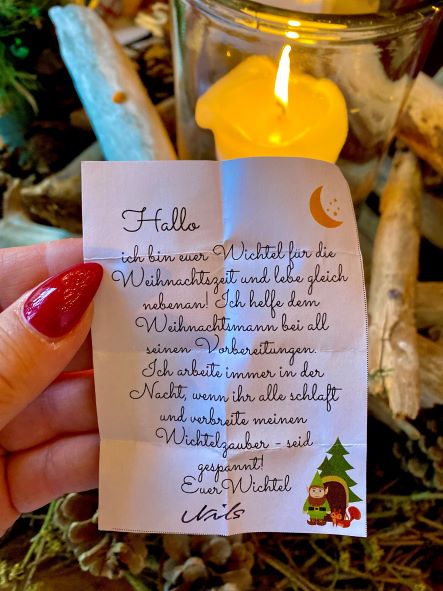 Hallo
ich bin euer Wichtel für die
Weihnachtszeit und lebe gleich
nebenan! Ich helfe dem
Weihnachtsmann bei all
seinen Vorbereitungen.
Ich arbeite immer in der
Nacht, wenn ihr alle schlaft
und verbreite meinen
Wichtelzauber - seid
gespannt!
Euer Wichtel
Nils